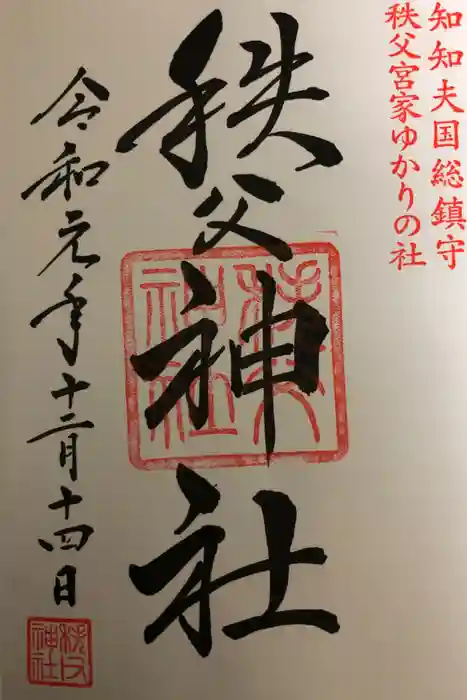 知知夫国総鎮守
秩父宮家ゆかりの社
秩父神社
令和元年十二月十四日
秩父神社
秩父神社